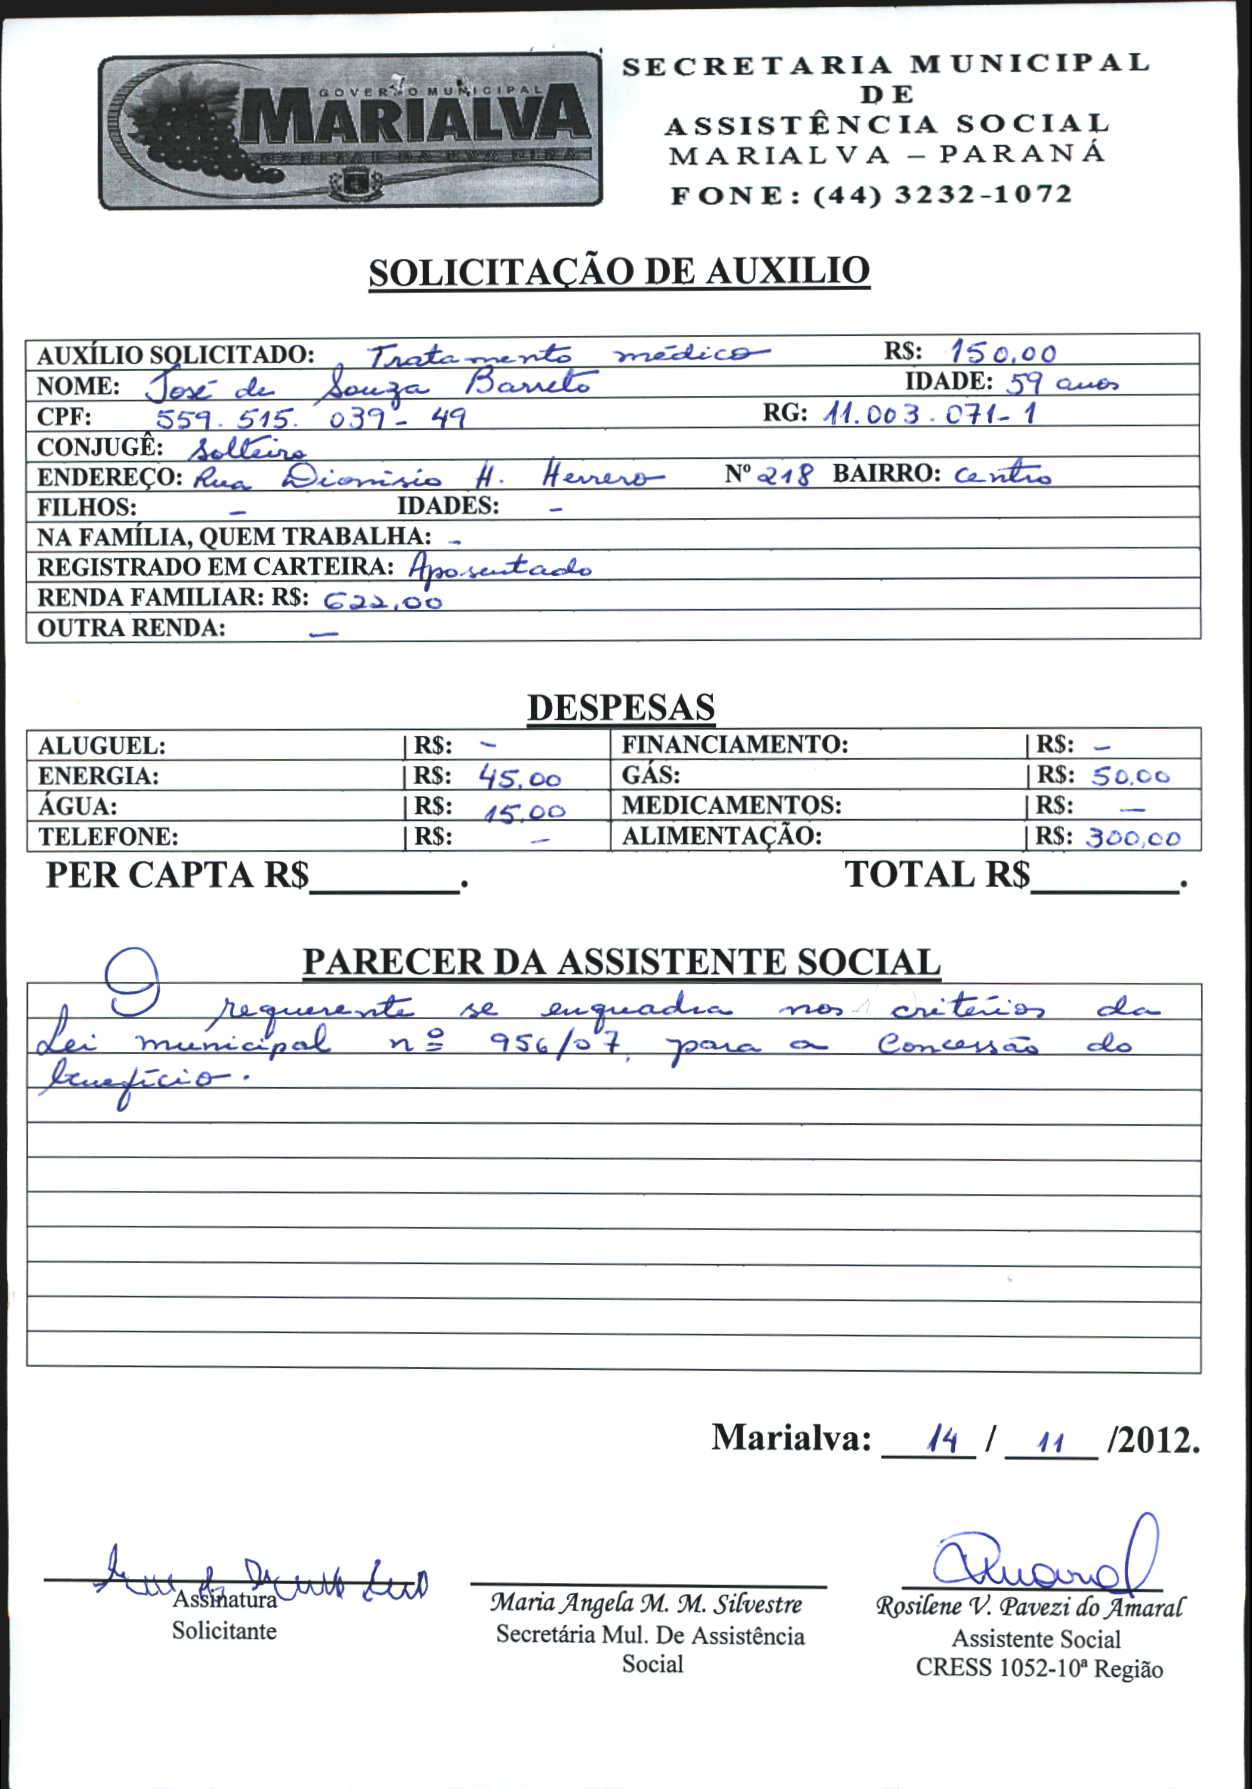 GOVERNO MUNICIPAL
MARIALVA
CAPITAL DA UVA FINA
SECRETARIA MUNICIPAL
DE
ASSISTÊNCIA SOCIAL
MARIALVA – PARANÁ
FONE: (44) 3232-1072
SOLICITAÇÃO DE AUXILIO
AUXÍLIO SOLICITADO: Tratamento médico R$: 150,00
NOME: José de Souza Barreto IDADE: 59 anos
CPF: 559.515.039-49 RG: 11.003.071-1
CONJUGÊ: Solteiro
ENDEREÇO: Rua Dionisio H. Herrero Nº 218 BAIRRO: Centro
FILHOS: - IDADES: -
NA FAMÍLIA, QUEM TRABALHA: -
REGISTRADO EM CARTEIRA: Aposentado
RENDA FAMILIAR: R$: 622,00
OUTRA RENDA: -
DESPESAS
ALUGUEL: | R$: - FINANCIAMENTO: | R$: -
ENERGIA: | R$: 45,00 GÁS: | R$: 50,00
ÁGUA: | R$: 15,00 MEDICAMENTOS: | R$: -
TELEFONE: | R$: - ALIMENTAÇÃO: | R$: 300,00
PER CAPTA R$________. TOTAL R$________.
PARECER DA ASSISTENTE SOCIAL
O requerente se enquadra nos critérios da
Lei municipal nº 956/07, para a Concessão do
benefício.
Marialva: 14 / 11 /2012.
Amaral
Assinatura
Solicitante
Maria Angela M. M. Silvestre
Secretária Mul. De Assistência
Social
Rosilene V. Pavezi do Amaral
Assistente Social
CRESS 1052-10ª Região